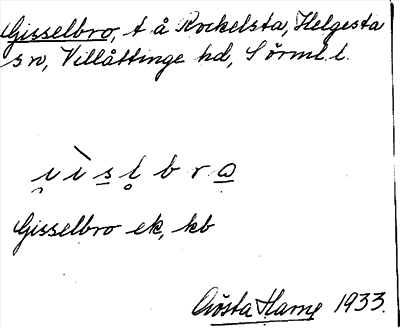 Gisselbro, t å Rockelsta, Helgesta
sn, Villåttinge hd, Sörml. l.
Gisselbro ek, kb
Gösta Hamp 1933.